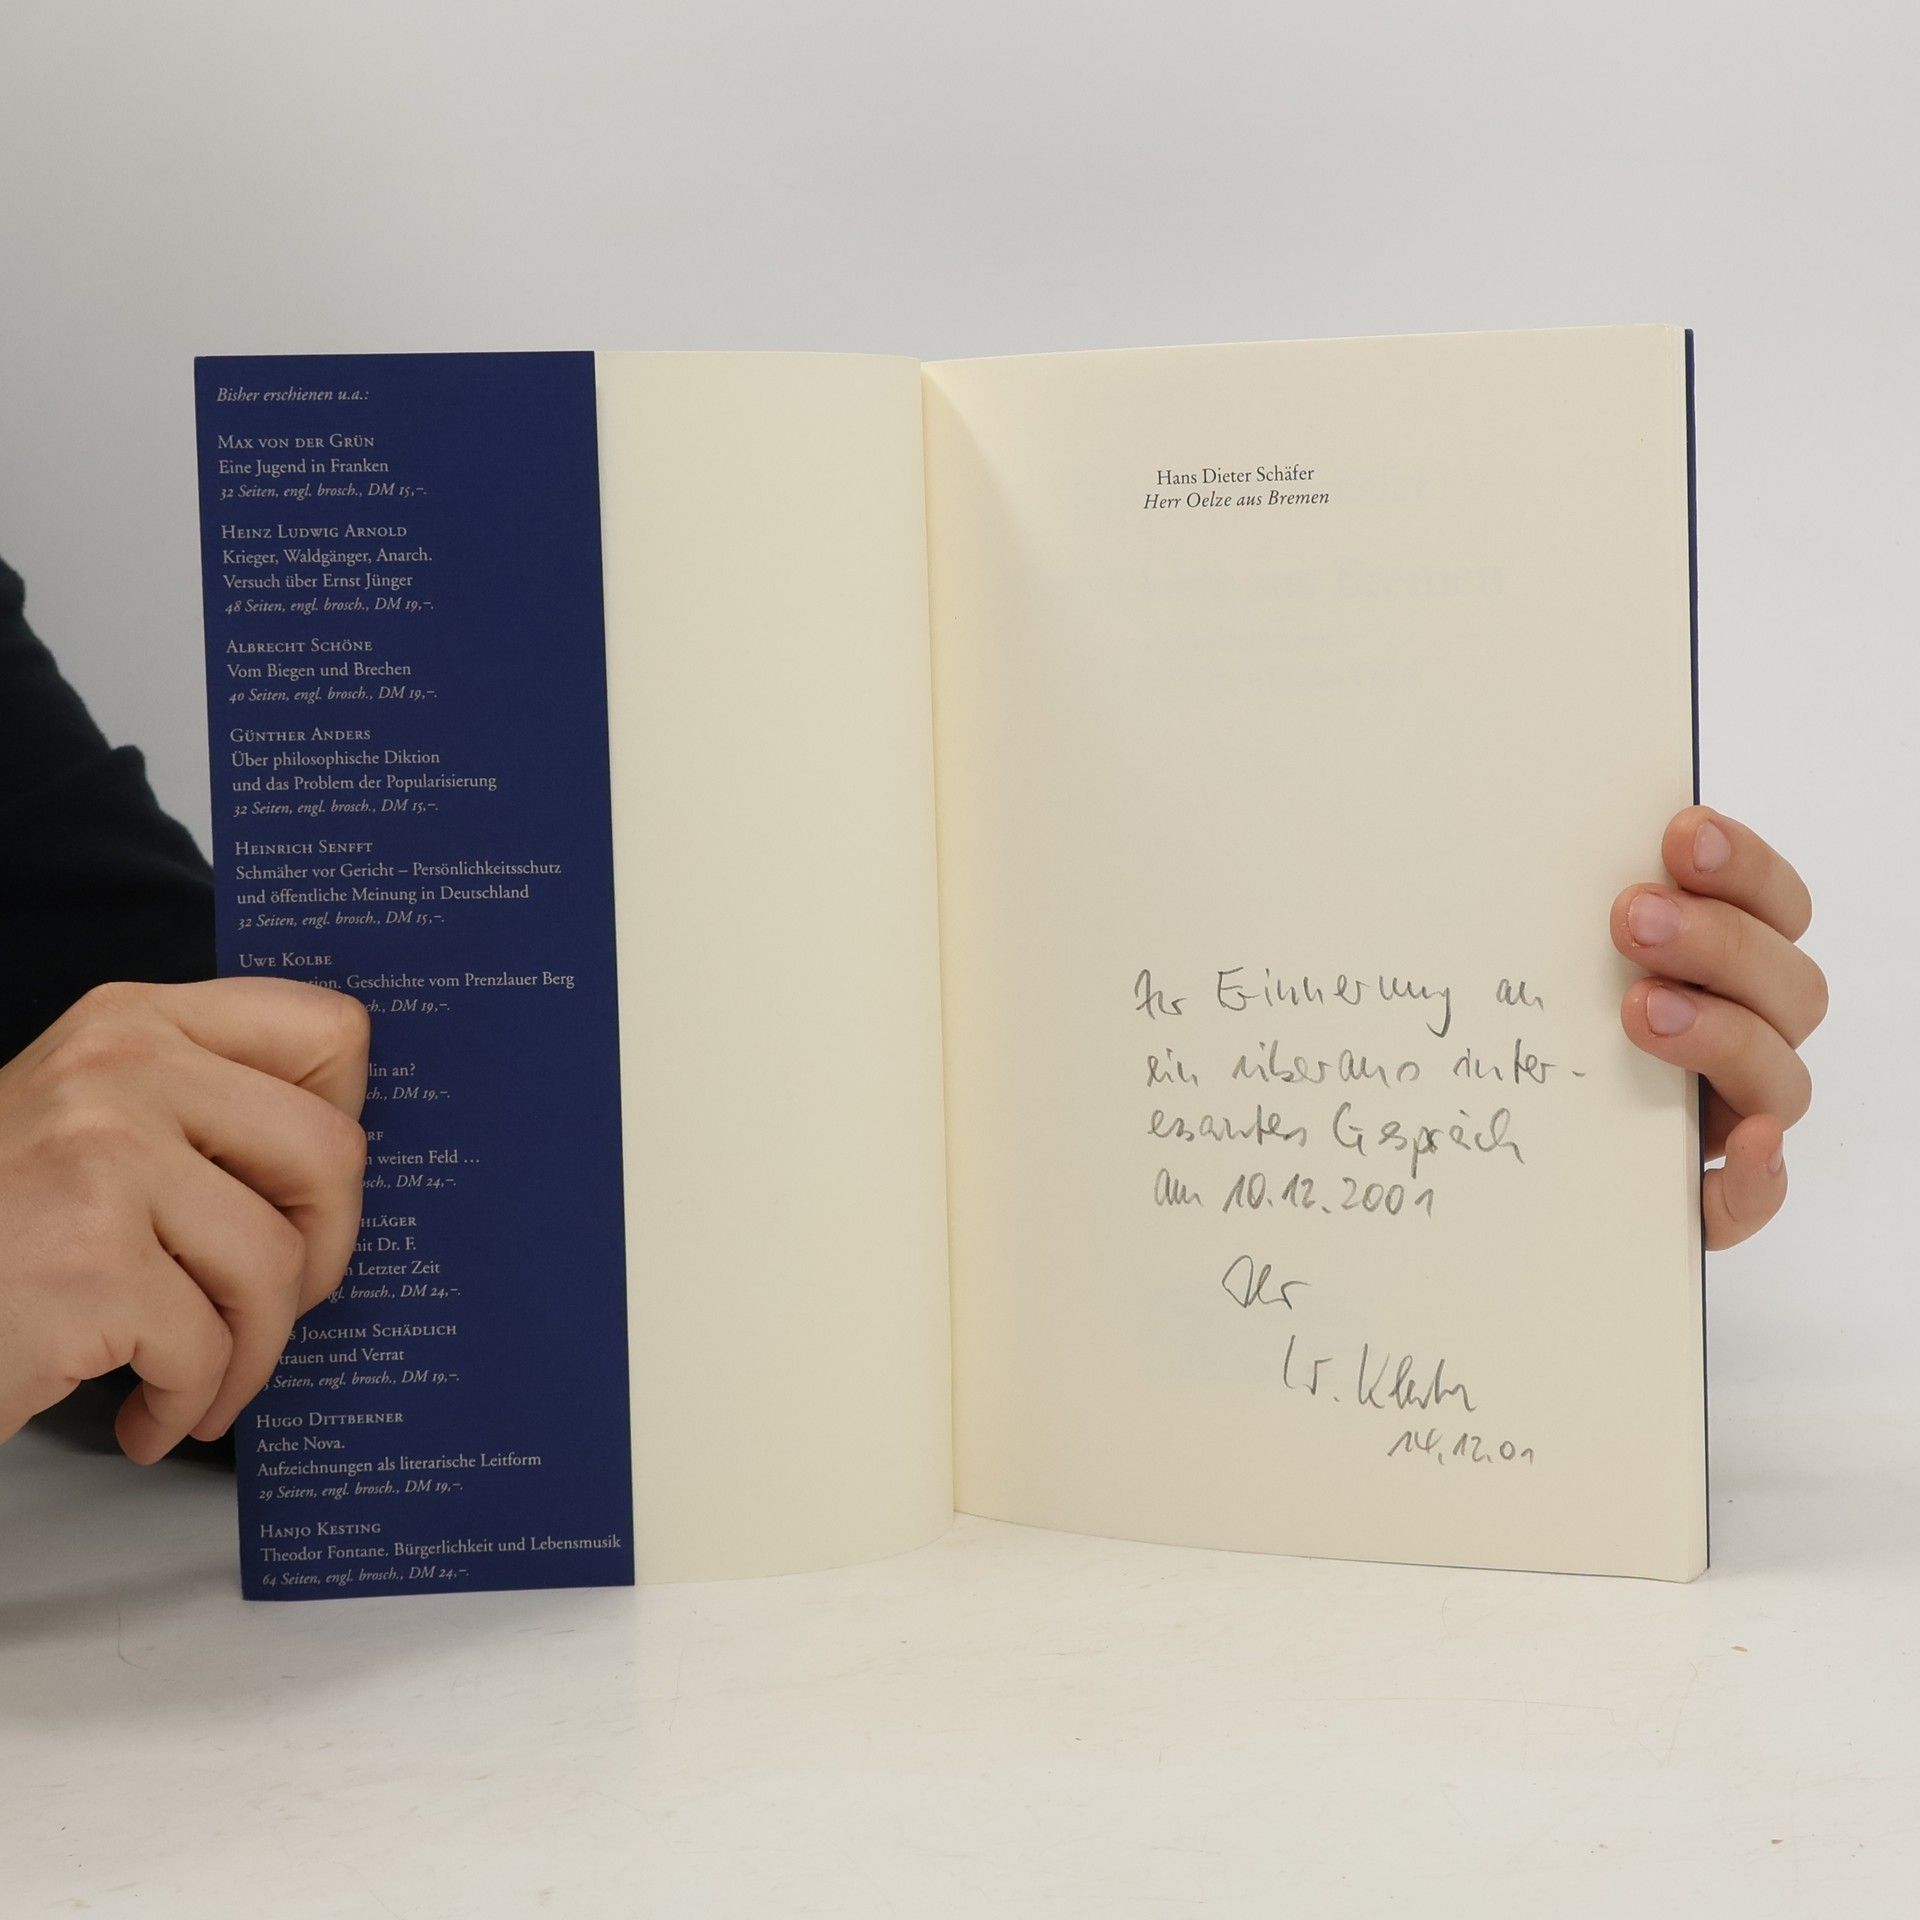 Bisher erschienen u.a.:
MAX VON DER GRÜN
Eine Jugend in Franken
32 Seiten, engl. brosch., DM 15,–.
HEINZ LUDWIG ARNOLD
Krieger, Waldgänger, Anarch.
Versuch über Ernst Jünger
48 Seiten, engl. brosch., DM 19,–.
ALBRECHT SCHÖNE
Vom Biegen und Brechen
40 Seiten, engl. brosch., DM 19,–.
GÜNTHER ANDERS
Über philosophische Diktion
und das Problem der Popularisierung
32 Seiten, engl. brosch., DM 15,–.
HEINRICH SENFFT
Schmäher vor Gericht – Persönlichkeitsschutz
und öffentliche Meinung in Deutschland
32 Seiten, engl. brosch., DM 15,–.
UWE KOLBE
Geschichte vom Prenzlauer Berg
DM 19,–.
an?
DM 19,–.
weiten Feld ...
DM 24,–.
Dr. F.
Letzter Zeit
brosch., DM 24,–.
JOACHIM SCHÄDLICH
und Verrat
Seiten, engl. brosch., DM 19,–.
HUGO DITTBERNER
Arche Nova.
Aufzeichnungen als literarische Leitform
29 Seiten, engl. brosch., DM 19,–.
HANJO KESTING
Theodor Fontane. Bürgerlichkeit und Lebensmusik
64 Seiten, engl. brosch., DM 24,–.
Hans Dieter Schäfer
Herr Oelze aus Bremen
Zur Erinnerung an
ein überaus inter-
essantes Gespräch
am 10.12.2001
Ihr
W.
14.12.01